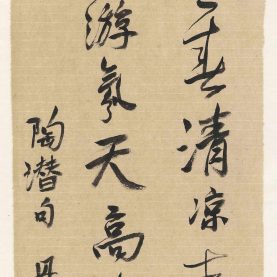 春清凉
游氛天高
陶潜句